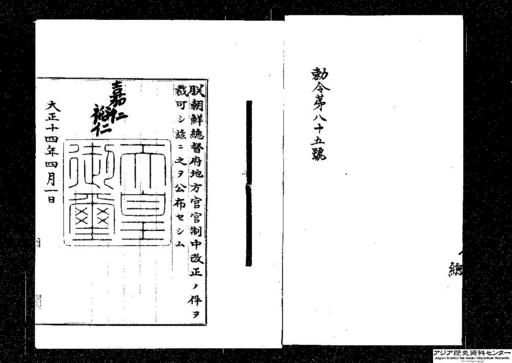 勅令第八十五號
朕朝鮮總督府地方官官制中改正ノ件ヲ
裁可シ玆ニ之ヲ公布セシム
嘉仁
裕仁
天皇
御璽
大正十四年四月一日
總
アジア歴史資料センター
Japan Center for Asian Historical Records